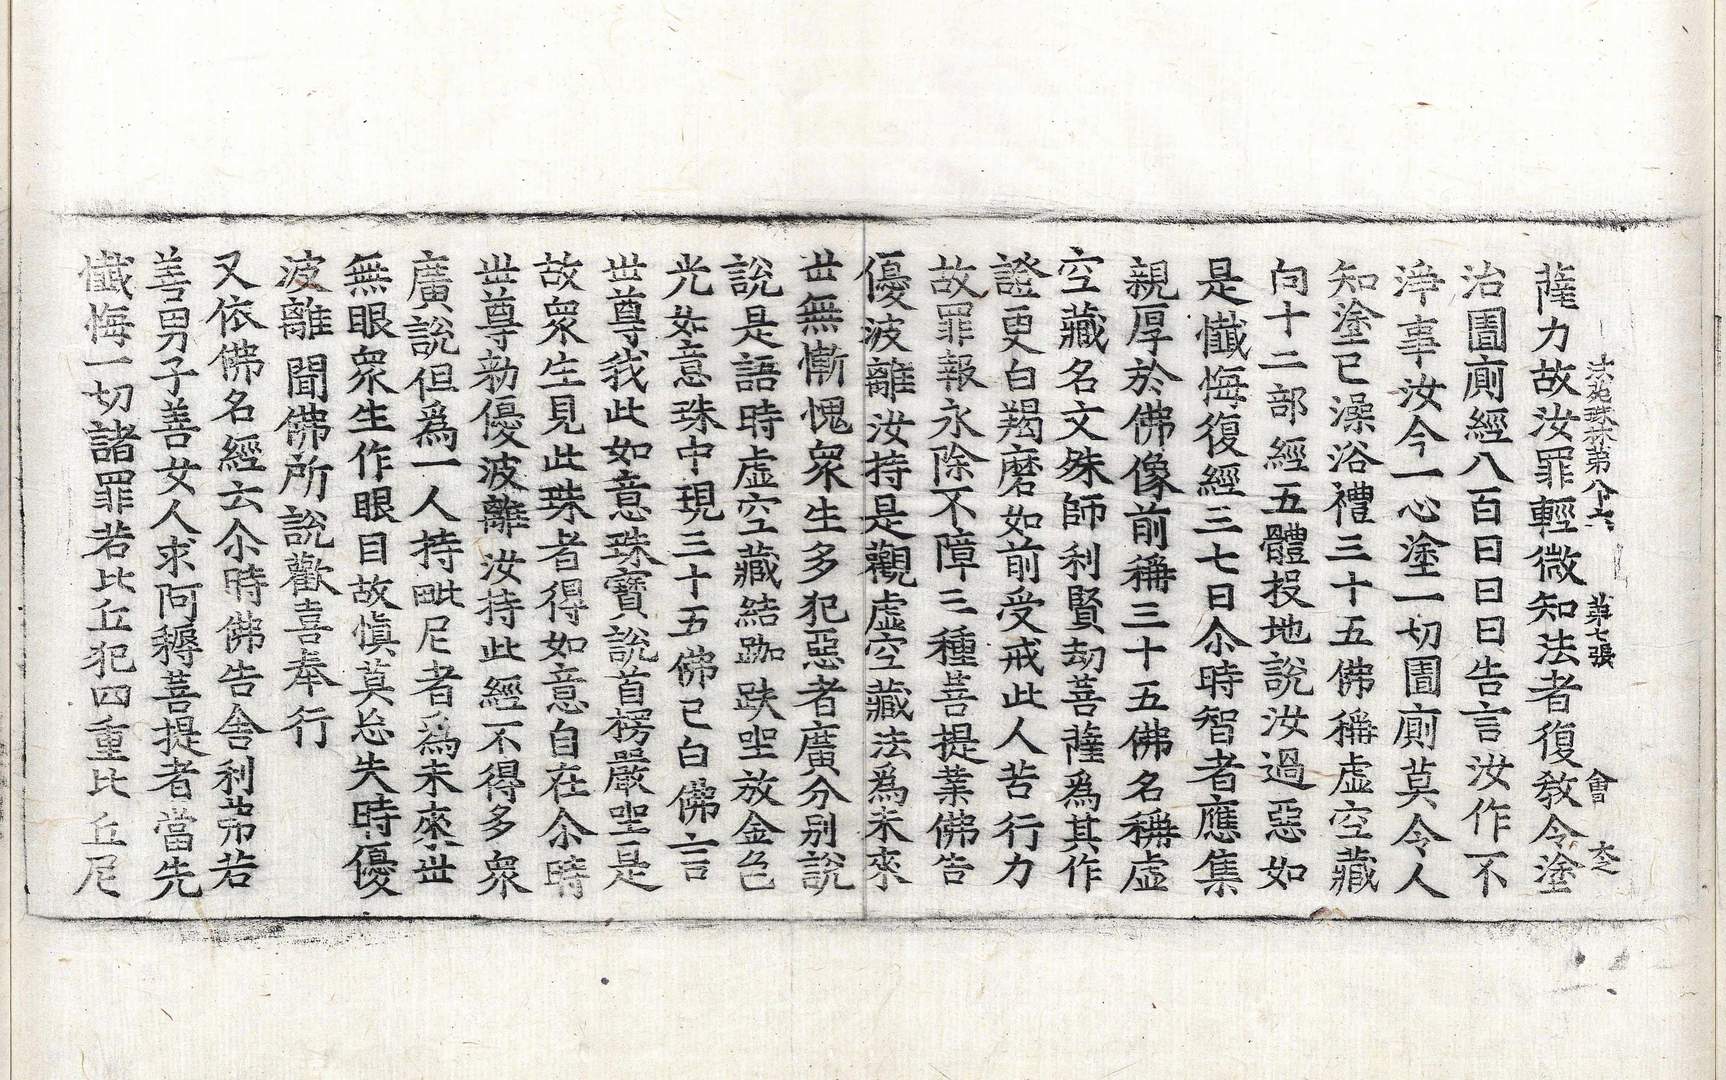 法苑珠林第八十六　第七張　會
薩力故汝罪輕微知法者復敎令塗
治圊廁經八百日日日告言汝作不
淨事汝今一心塗一切圊廁莫令人
知塗已澡浴禮三十五佛稱虛空藏
向十二部經五體投地說汝過惡如
是懺悔復經三七日尒時智者應集
親厚於佛像前稱三十五佛名稱虛
空藏名文殊師利賢劫菩薩爲其作
證更白羯磨如前受戒此人苦行力
故罪報永除不障三種菩提業佛告
優波離汝持是觀虛空藏法爲未來
世無慚愧衆生多犯惡者廣分別說
說是語時虛空藏結跏趺坐放金色
光如意珠中現三十五佛已白佛言
世尊我此如意珠寶說首楞嚴坐是
故衆生見此珠者得如意自在尒時
世尊勑優波離汝持此經不得多衆
廣說但爲一人持毗尼者爲未來世
無眼衆生作眼目故愼莫忘失時優
波離聞佛所說歡喜奉行
又依佛名經云尒時佛告舍利弗若
善男子善女人求阿耨菩提者當先
懺悔一切諸罪若比丘犯四重比丘尼